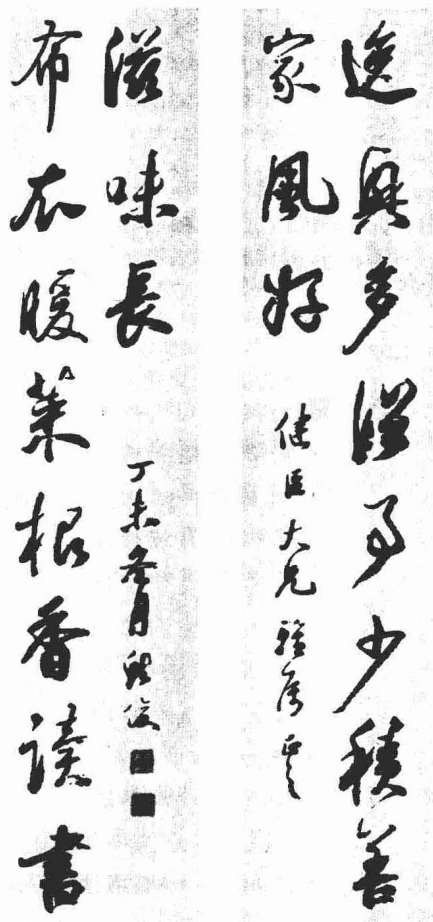 逸興多事少積善
家風好
健臣大兄雅屬正之
布衣暖菜根香讀書
滋味長
丁未冬月